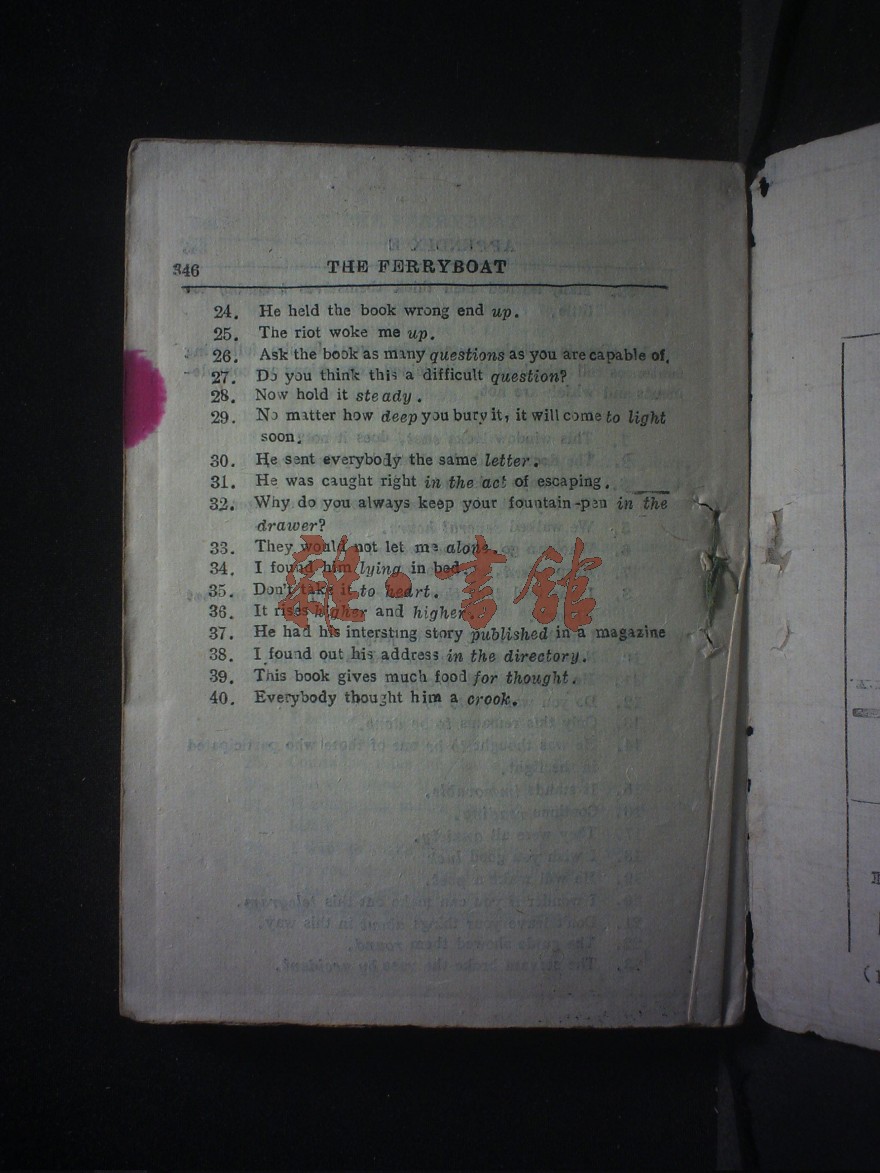 346 THE FERRYBOAT
24. He held the book wrong end up.
25. The riot woke me up.
26. Ask the book as many questions as you are capable of.
27. Do you think this a difficult question?
28. Now hold it steady.
29. No matter how deep you bury it, it will come to light
soon.
30. He sent everybody the same letter.
31. He was caught right in the act of escaping.
32. Why do you always keep your fountain-pen in the
drawer?
33. They would not let me alone.
34. I found him lying in bed.
35. Don't take it to heart.
36. It rises higher and higher.
37. He had his intersting story published in a magazine
38. I found out his address in the directory.
39. This book gives much food for thought.
40. Everybody thought him a crook.
雜·書館